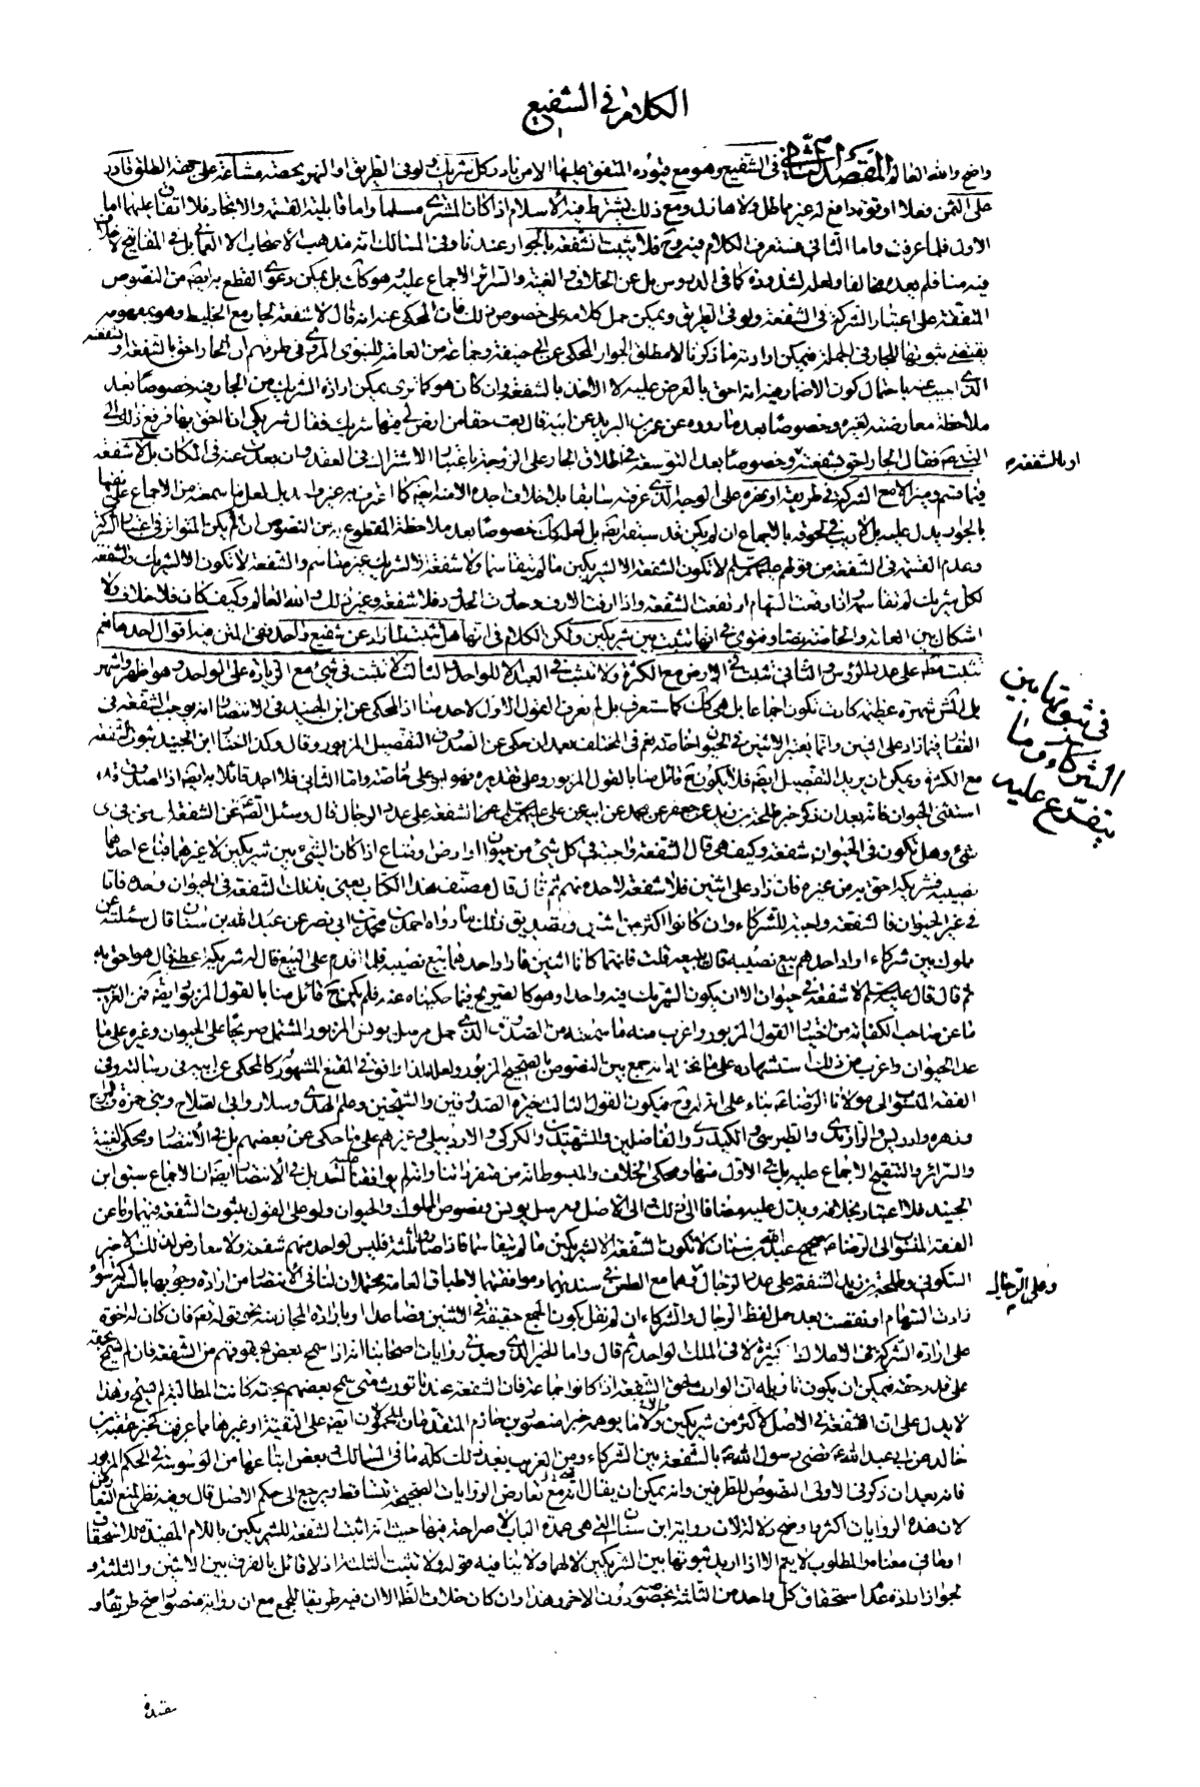 الكلام في الشفيع
واضح والله العالم المقصد الثاني في الشفيع وهو مع قيوده المتفق عليها الامن نادر كل شريك ولو في الطريق او النهر بحصة مشاعة على جهة الطلق قادر
على الثمن فعلا او قوة دافع له غير مماطل ولا هازل ومع ذلك يشترط فيه الاسلام اذا كان المشتري مسلما واما قابلية القسمة والاتحاد فلا اتفاق عليهما اما
الاول فلما عرفت واما الثاني فستعرف الكلام فيه وح فلا يثبت الشفعة بالجوار عندنا وفي المسالك انه مذهب الاصحاب الا العماني بل في المفاتيح لا خلاف
فيه منا فلم يعده مخالفا ولعله لشذوذه كما في الدروس بل عن الخلاف والغنية والسرائر الاجماع عليه وهو كك بل يمكن دعوى القطع به ايضا من النصوص
المتفقة على اعتبار الشركة في الشفعة ولو في الطريق ويمكن حمل كلامه على خصوص ذلك فان المحكي عنه انه قال لا شفعة لجار مع الخليط وهو بمفهومه
يقتضي ثبوتها للجار في الجملة فيمكن ارادته ما ذكرنا لا مطلق الجوار المحكي عن ابي حنيفة وجماعة من العامة للنبوي المروي في طرقهم ان الجار احق بالشفعة
الذي اجيب عنه باحتمال كون الاضمار فيه انه احق بالعرض عليه لا الاخذ بالشفعة وان كان هو كما ترى يمكن ارادة الشريك من الجار فيه خصوصا بعد
ملاحظة معارضته لغيره وخصوصا بعد ما رووه عن عمرو بن الشريد عن ابيه قال بعت حقا من ارض لي فيها شريك فقال شريكي انا احق بها فرفع ذلك الى
النبي ص فقال الجار احق بشفعته وخصوصا بعد التوسعة في اطلاق الجار على الزوجة باعتبار الاشتراك في العقد وان بعدت عنه في المكان بل لا شفعة
او بالشفعة
فيما قسم وميز الا مع الشركة في طريقه او نهره على الوجه الذي عرفته سابقا بلا خلاف اجده الا منه ايضا كما اعترف به غير واحد بل لعل ما سمعته من الاجماع على نفيها
بالجوار يدل عليه بل لا ريب في لحوقه بالاجماع ان لم يكن قد سبقه ايضا بل لعله كك خصوصا بعد ملاحظة المقطوع به من النصوص ان لم يكن المتواتر في اعتبار الشركة
وعدم القسمة في الشفعة من قولهم عليهم السلام لا تكون الشفعة الا لشريكين ما لم يتقاسما ولا شفعة الا لشريك غير مقاسم والشفعة لا تكون الا لشريك والشفعة
لكل شريك لم تقاسمه واذا وقعت السهام ارتفعت الشفعة واذا ارفت الارف وحدت الحدود فلا شفعة وغير ذلك والله العالم وكيف كان فلا خلاف ولا
اشكال بين العامة والخاصة نصا وفتوى في انها تثبت بين شريكين ولكن الكلام في انها هل تثبت لما زاد عن شفيع واحد ففي المتن فيه اقوال احدها نعم
تثبت مطلقا على عدد الرؤس والثاني تثبت في الارض مع الكثرة ولا تثبت في العبد الا للواحد والثالث لا تثبت في شيء مع الزيادة على الواحد وهو اظهر واشهر
في ثبوتها بين
الشركاء وما
يتفرع عليه
بل المشهور شهرة عظيمة كادت تكون اجماعا بل هي كك كما ستعرف بل لم نعرف القول الاول لاحد منا اذ المحكي عن ابن الجنيد في الانتصار انه يوجب الشفعة في
العقار فيما زاد على اثنين وانما يعتبر الاثنين في الحيوان خاصة نعم في المختلف بعد ان حكى عن الصدوق التفصيل المزبور وقال وكذا اختار ابن الجنيد ثبوت الشفعة
مع الكثرة ويمكن ان يريد التفصيل ايضا فلا يكون ح قائل منا بالقول المزبور وعلى تقديره فهو ابو علي خاصة واما الثاني فلا احد قائلا به ايضا اذ الصدوق وان
استثنى الحيوان فانه بعد ان ذكر خبر طلحة بن زيد عن جعفر عن محمد عن ابيه عن علي عليهم السلام عن الشفعة على عدد الرجال قال وسئل الصادق عن الشفعة لمن هي وفي اي
شيء وهل تكون في الحيوان شفعة وكيف هي قال الشفعة واجبة في كل شيء من حيوان او ارض او متاع اذا كان الشيء بين شريكين لا غيرهما فباع احدهما
نصيبه فشريكه احق به من غيره فان زاد على اثنين فلا شفعة لاحد منهم ثم قال قال مصنف هذا الكتاب يعني بذلك الشفعة في الحيوان وحده فاما
في غير الحيوان فالشفعة واجبة للشركاء وان كانوا اكثر من اثنين وتصديق ذلك ما رواه احمد بن محمد بن ابي نصر عن عبد الله بن سنان قال سئلته عن
مملوك بين شركاء اراد احدهم بيع نصيبه قال يبيعه قلت فانهما كانا اثنين فاراد احدهما بيع نصيبه فلما اقدم على البيع قال له شريكه اعطني قال هو احق به
ثم قال قال عليه السلام لا شفعة في حيوان الا ان يكون الشريك فيه واحدا وهو كالصريح فيما حكيناه عنه فلم يكن ح قائل منا بالقول المزبور ايضا فمن الغريب
ما عن صاحب الكفاية من اختيار القول المزبور واغرب منه ما سمعته من الصدوق الذي حمل مرسل يونس المزبور المشتمل صريحا على الحيوان وغيره على ما
عدا الحيوان واغرب من ذلك استشهاده على ما بالصحيح المزبور ولعله لذا وافق في المقنع المشهور كالمحكي عن ابيه في رسالته وفي
الفقه المنسوب الى مولانا الرضا ع بناء على انه له وح فيكون القول الثالث خيرة الصدوقين والشيخين وعلم الهدى وسلار وابي الصلاح وبني حمزة والبراج
وزهرة وادريس والراوندي والطبرسي والكيدري والفاضلين والشهيدين والكركي والاردبيلي وغيرهم على ما حكي عن بعضهم بل في الانتصار ومحكي الغنية
والسرائر والتنقيح الاجماع عليه بل في الاول منها ومحكي الخلاف والمبسوط انه من متفرداتنا وانه لم يوافقنا عليه احد بل في الانتصار ايضا ان الاجماع سبق ابن
الجنيد فلا اعتبار بخلافه ويدل عليه مضافا الى ذلك والى الاصل ومرسل يونس ونصوص المملوك والحيوان ولو على القول بثبوت الشفعة فيهما وما عن
الفقه المنسوب الى الرضا ع صحيح عبد الله بن سنان لا تكون الشفعة الا لشريكين ما لم يتقاسما فاذا صاروا ثلثة فليس لواحد منهم شفعة ولا معارض لذلك الا خبر
السكوني وطلحة بن زيد الشفعة على عدد الرجال وهما مع الطعن في سندهما وموافقتهما لاطباق العامة محتملان لما في الانتصار من ارادة وجوبها بالشركة سواء
وعلى الرجال
زادت السهام او نقصت بعد حمل لفظ الرجال والشركاء ان لم نقل بكون الجمع حقيقة في اثنين فصاعدا وبارادة المجاز منه نحو قوله تعم فان كان له اخوة
على ارادة الشركة في الاملاك الكثيرة لا في الملك الواحد ثم قال واما الخبر الذي وجد في روايات اصحابنا انه اذا سمح بعض بحقوقهم من الشفعة فان لم يسمح بحقه
على قدر حقه فيمكن ان يكون تاويله ان الوارث لحق الشفعة اذا كانوا جماعة فان الشفعة عندنا تورث متى سمح بعضهم بحقه كانت المطالبة لمن لم يسمح وهذا
لا يدل على ان الشفعة في الاصل لاكثر من شريكين ولا ما يوهمه خبر منصور بن حازم المتقدمان المحمولان ايضا على التقية او غيرها مما عرفت كخبر عقبة بن
خالد عن ابي عبد الله ع قضى رسول الله ص بالشفعة بين الشركاء ومن الغريب بعد ذلك كله ما في المسالك وبعض اتباعها من الوسوسة في الحكم المزبور
فانه بعد ان ذكر في الاولى النصوص للطرفين وانه يمكن ان يقال انه مع تعارض الروايات الصحيحة تتساقط ويرجع الى حكم الاصل قال وفيه نظر لمنع التعارض
لان هذه الروايات اكثرها واوضح دلالة لان رواية ابن سنان التي هي عمدة الباب لا صراحة فيها حيث انه اثبت الشفعة للشريكين باللام المفيدة للاستحقاق
او ما في معناه من المطلوب لا يتم الا اذا اريد ثبوتها بين الشريكين لا لهما ولا ينافيه قوله ولا تثبت لثلثة اذ لا قائل بالفرق بين الاثنين والثلثة و
لجواز ارادة عدم استحقاق كل واحد من الثلثة بخصوصه دون الاخر وهذا وان كان خلاف الظاهر الا ان فيه طريقا للجمع مع ان رواية منصور اصح طريقا و